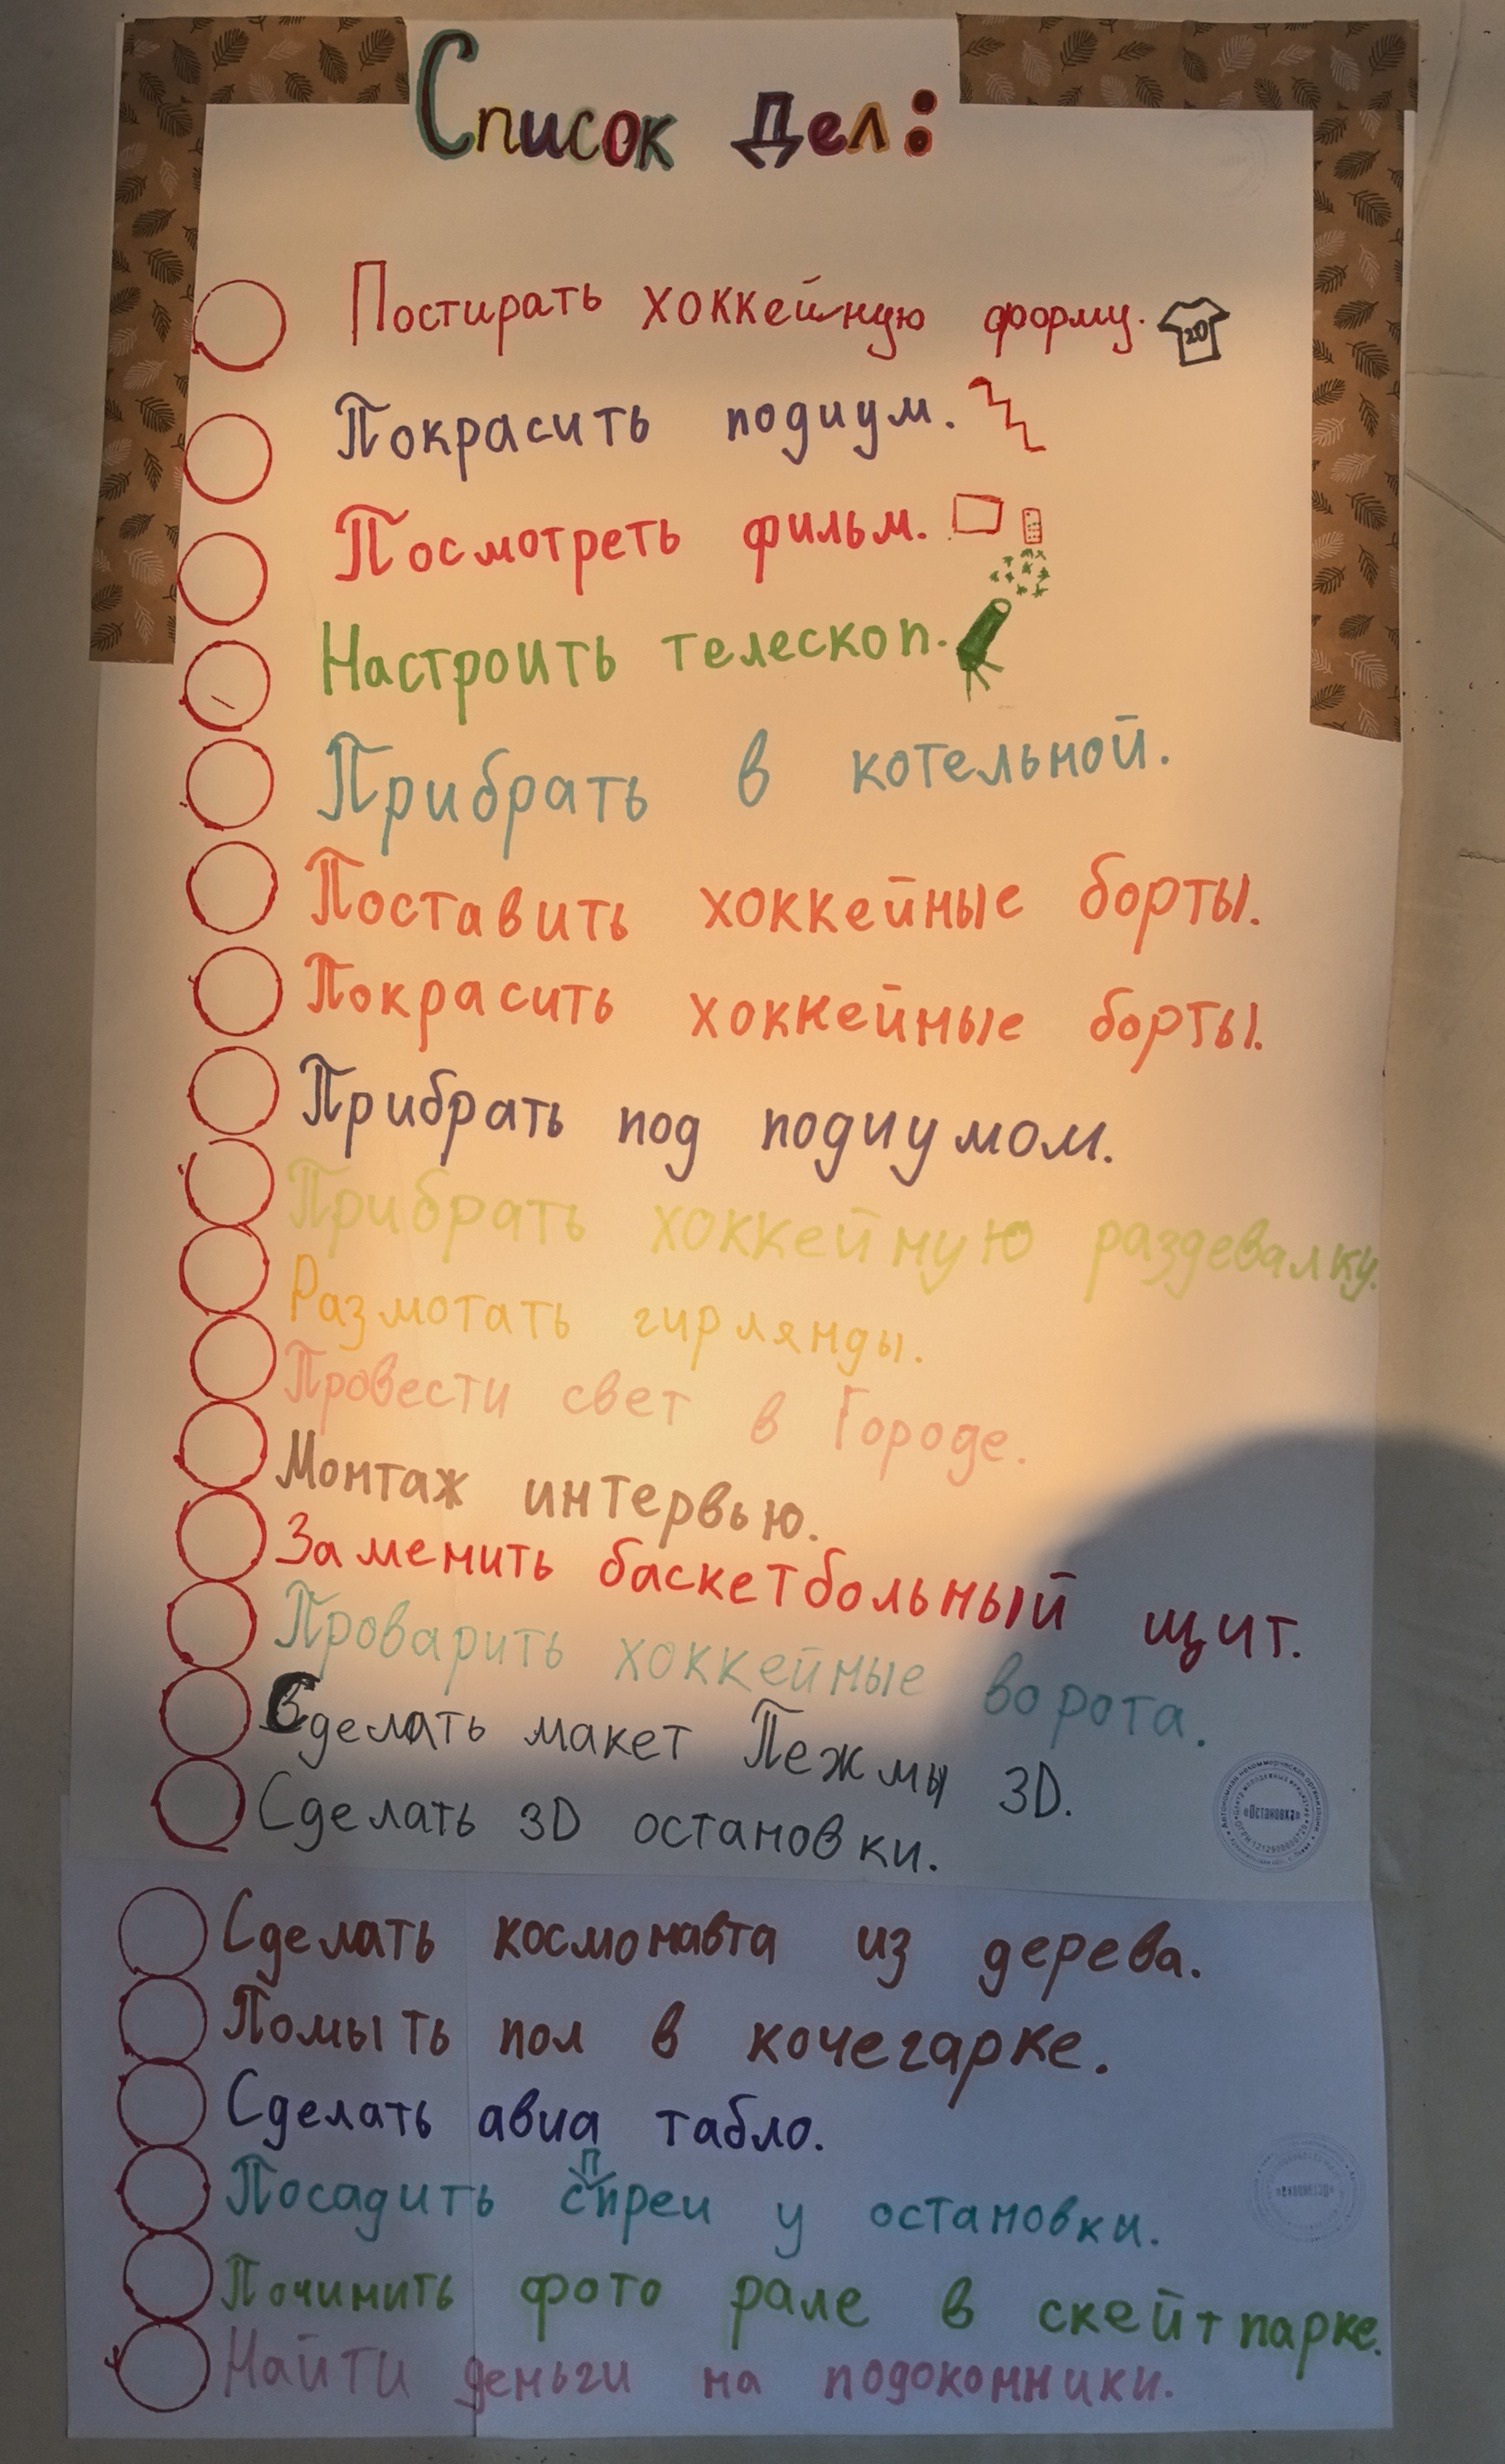 Список дел:
Постирать хоккейную форму. 20
Покрасить подиум.
Посмотреть фильм.
Настроить телескоп.
Прибрать в котельной.
Поставить хоккейные борты.
Покрасить хоккейные борты.
Прибрать под подиумом.
Прибрать хоккейную раздевалку.
Размотать гирлянды.
Провести свет в Городе.
Монтаж интервью.
Заменить баскетбольный щит.
Проварить хоккейные ворота.
Сделать макет Пежмы 3D.
Сделать 3D остановки.
«Остановка»
Сделать космонавта из дерева.
Помыть пол в кочегарке.
Сделать авиа табло.
П
Посадить спреи у остановки.
Починить фото рале в скейт парке.
Найти деньги на подоконники.